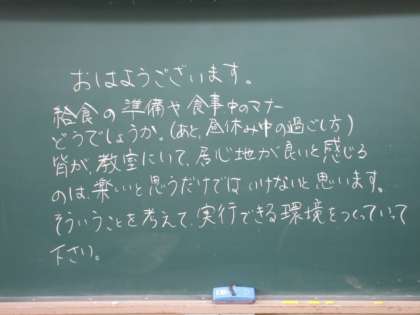 おはようございます。
給食の準備や食事中のマナー
どうでしょうか。(あと、昼休み中の過ごし方)
皆が、教室にいて、居心地が良いと感じる
のは、楽しいと思うだけではいけないと思います。
そういうことを考えて、実行できる環境をつくっていって
下さい。